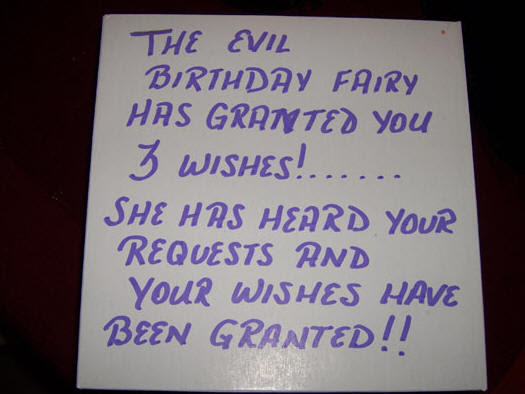 THE EVIL
BIRTHDAY FAIRY
HAS GRANTED YOU
3 WISHES!.......
SHE HAS HEARD YOUR
REQUESTS AND
YOUR WISHES HAVE
BEEN GRANTED!!